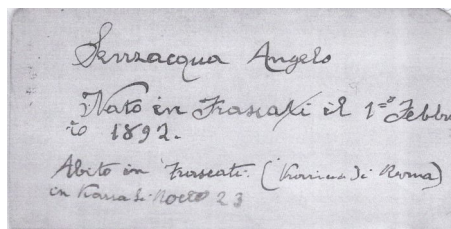 Senzacqua Angelo
Nato in Frascati il 1º Febbra
io 1892.
Abito in Frascati (Provincia di Roma)
in 23